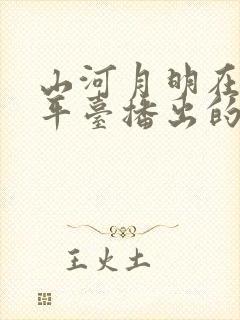 山河月明在
年臺播出的
王火土